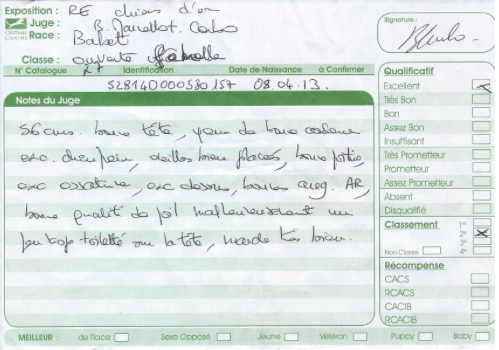 Exposition : RE chiens d'or
Juge : B. Carlos
Race : Barbet
CENTRALE CANINE
Classe : ouverte femelle
N° Catalogue Identification Date de Naissance à Confirmer
528140000530157 08.04.13.
Notes du Juge
56 cms. bonne tête, yeux de bonne couleur
exc. chanfrein, oreilles bien placées, bonne poitrine
exc ossature, exc dessus, bonnes ang. AR,
bonne qualité de poil malheureusement un
peu trop toiletté sur la tête, marche très bien.
Signature :
Qualificatif
Excellent
Très Bon
Bon
Assez Bon
Insuffisant
Très Prometteur
Prometteur
Assez Prometteur
Absent
Disqualifié
Classement 1°
2°
3°
Non Classé 4°
Récompense
CACS
RCACS
CACIB
RCACIB
MEILLEUR : de Race Sexe Opposé Jeune Vétéran Puppy Baby